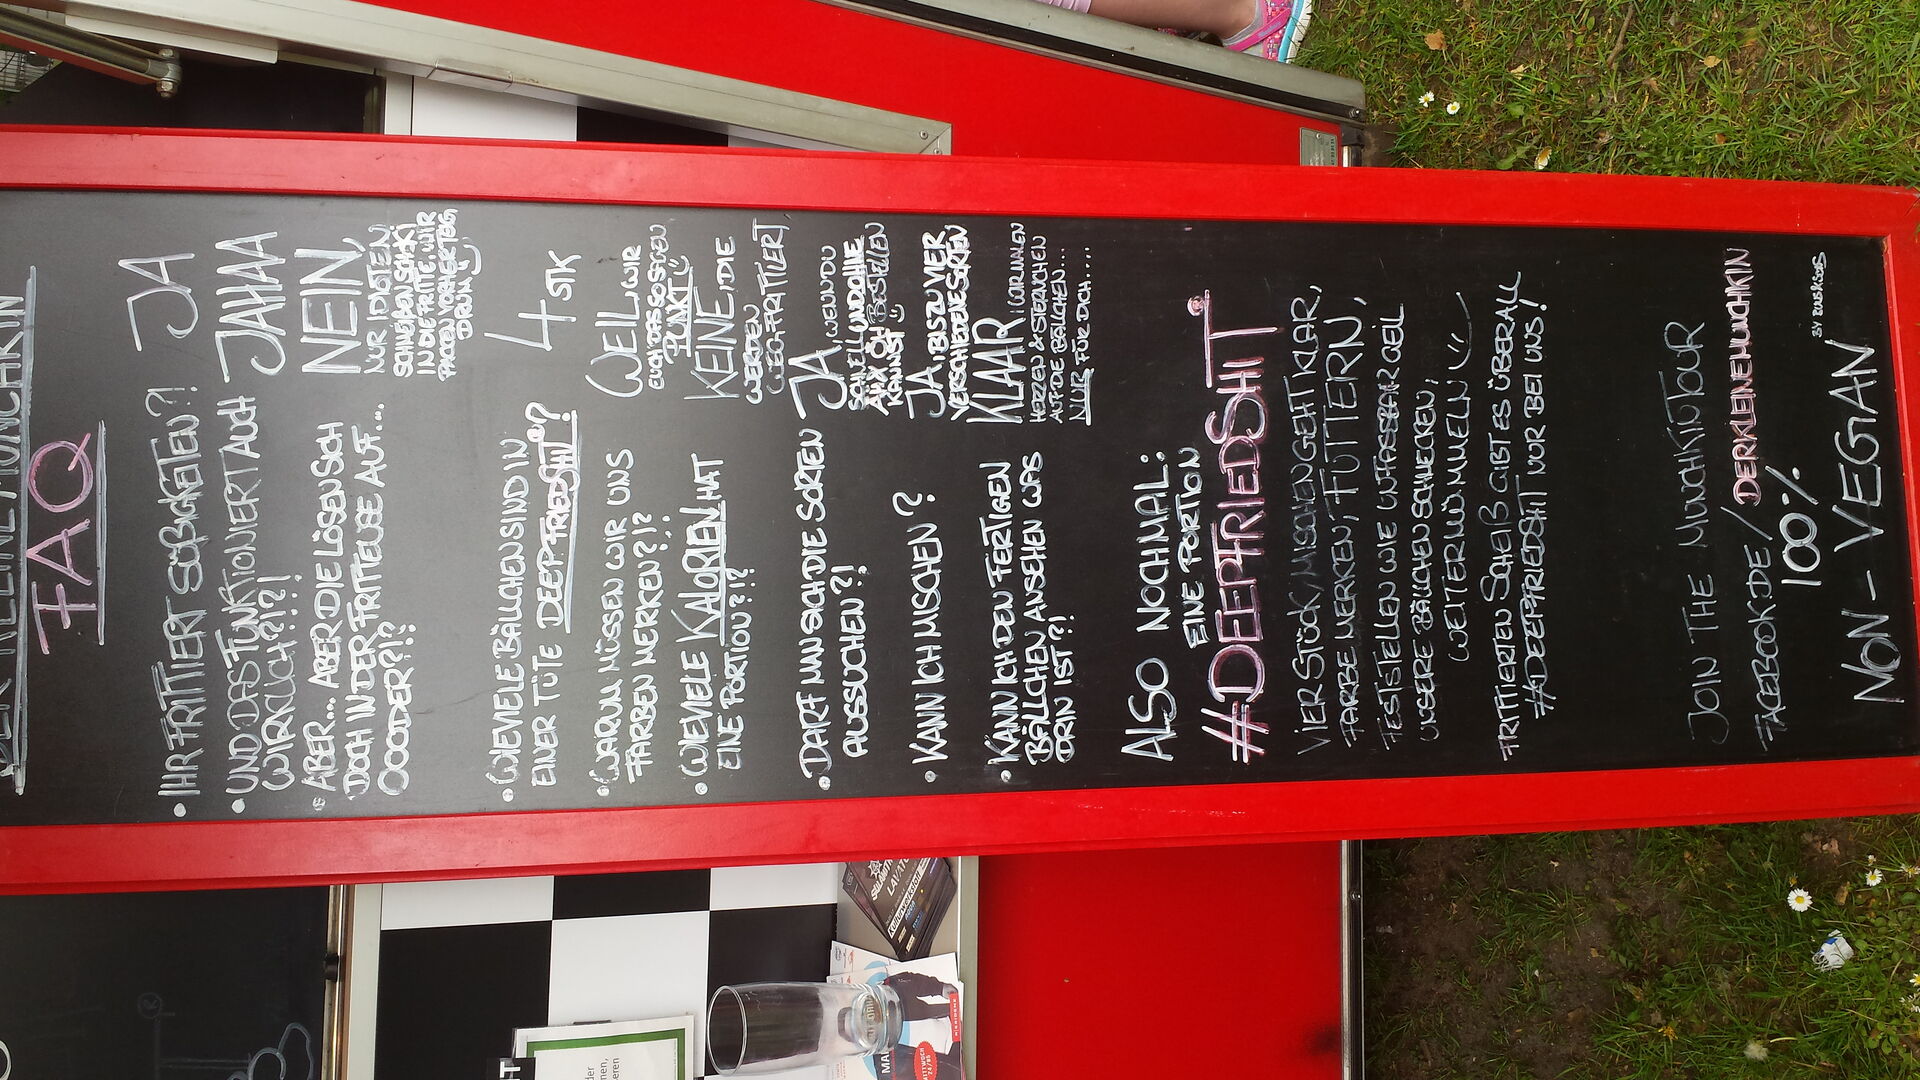 DER KLEINE MUNCHKIN
FAQ
• IHR FRITTIERT SÜßIGKEITEN?!
JA
• UND DAS FUNKTIONIERT AUCH
WIRKLICH?!?!
JAHAA
• ABER... ABER DIE LÖSEN SICH
DOCH IN DER FRITTEUSE AUF...
OOODER?!?
NEIN,
NUR IDIOTEN
SCHMEIßEN SHIT
IN DIE FRITTE, WIR
TEIG
DRUM
• WIEVIELE BÄLLCHEN SIND IN
EINER TÜTE DEEPFRIEDSHIT?
4 STK
• WARUM MÜSSEN WIR UNS
FARBEN MERKEN?!?
WEIL WIR
EUCH DAS SAGEN
PUNKT
• WIEVIELE KALORIEN HAT
EINE PORTION?!?
KEINE, DIE
WERDEN
WEGFRITTIERT
• DARF MAN SICH DIE SORTEN
AUSSUCHEN?!
JA, WENN DU
SCHNELL UND OHNE
ÄH X ÖH BESTELLEN
KANNST
• KANN ICH MISCHEN?
JA BIS ZU VIER
VERSCHIEDENE SORTEN
• KANN ICH DEN FERTIGEN
BÄLLCHEN ANSEHEN WAS
DRIN IST?!
KLAAR, WIR MALEN
HERZEN & STERNCHEN
AUF DIE BÄLLCHEN...
NUR FÜR DICH....
ALSO NOCHMAL:
EINE PORTION
#DEEPFRIEDSHIT
VIER STÜCK, MISCHEN GEHT KLAR,
FARBE MERKEN, FUTTERN,
FESTSTELLEN WIE UNFASSBAR GEIL
UNSERE BÄLLCHEN SCHMECKEN,
WEITERMÜMMELN
FRITTIERTEN SCHEIß GIBT ES ÜBERALL
#DEEPFRIEDSHIT NUR BEI UNS!
JOIN THE MUNCHKINTOUR
FACEBOOK.DE/DERKLEINEMUNCHKIN
100%
NON-VEGAN
LAVA
MITTWOCH
24/05